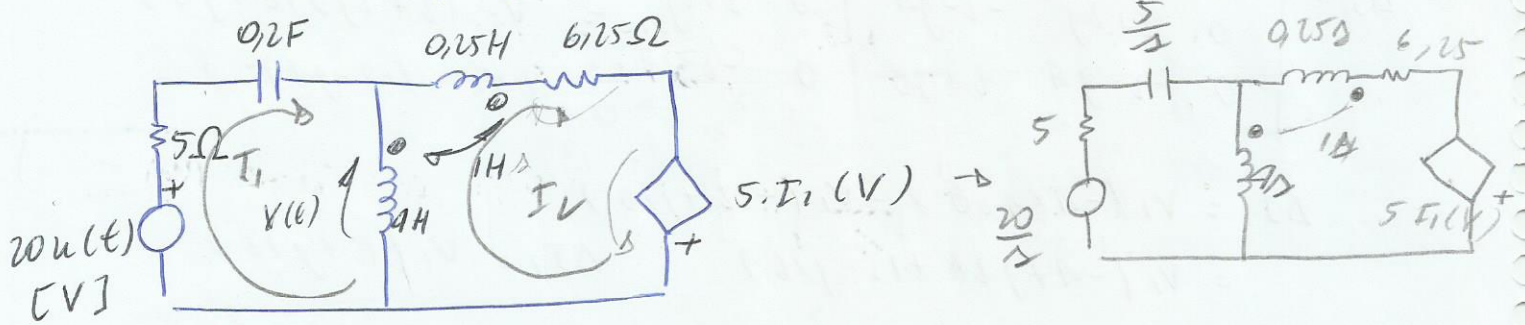 0,2F
0,25H 6,25Ω
5Ω
I₁
+
V(t)
4H
1H
I₂
5.I₁ (V)
+
20u(t)
[V]
→
5/s
0,25s 6,25
5
1s
4s
20/s
5I₁(V)
+